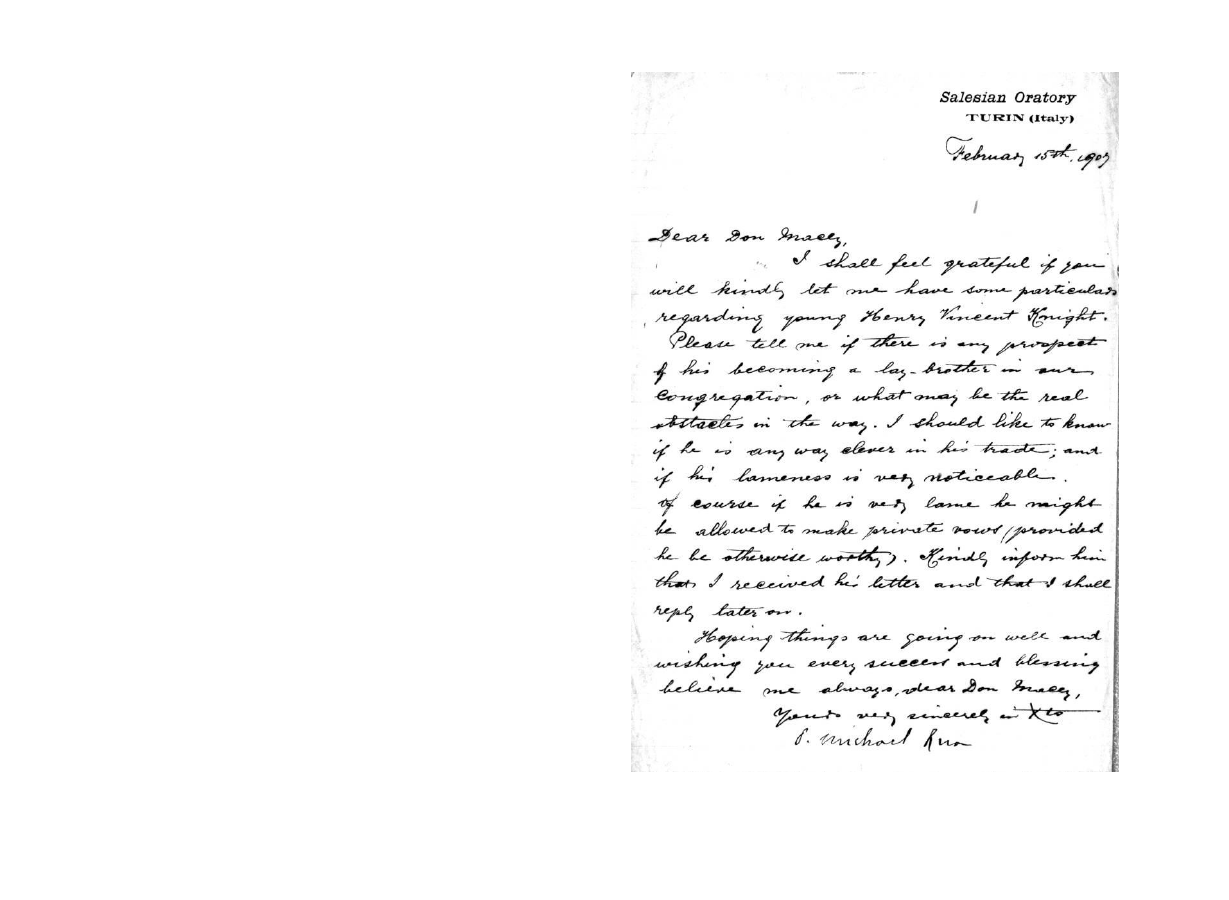 Salesian Oratory
TURIN (Italy)
February 15th. 1907
Dear Don Macey,
I shall feel grateful if you
will kindly let me have some particulars
regarding young Henry Vincent Knight.
Please tell me if there is any prospect
of his becoming a lay-brother in our
Congregation, or what may be the real
obstacles in the way. I should like to know
if he is any way clever in his trade; and
if his lameness is very noticeable.
Of course if he is very lame he might
be allowed to make private vows (provided
he be otherwise worthy). Kindly inform him
that I received his letter and that I shall
reply later on.
Hoping things are going on well and
wishing you every success and blessing
believe me always, dear Don Macey,
Yours very sincerely in Xto
S. Michael Rua